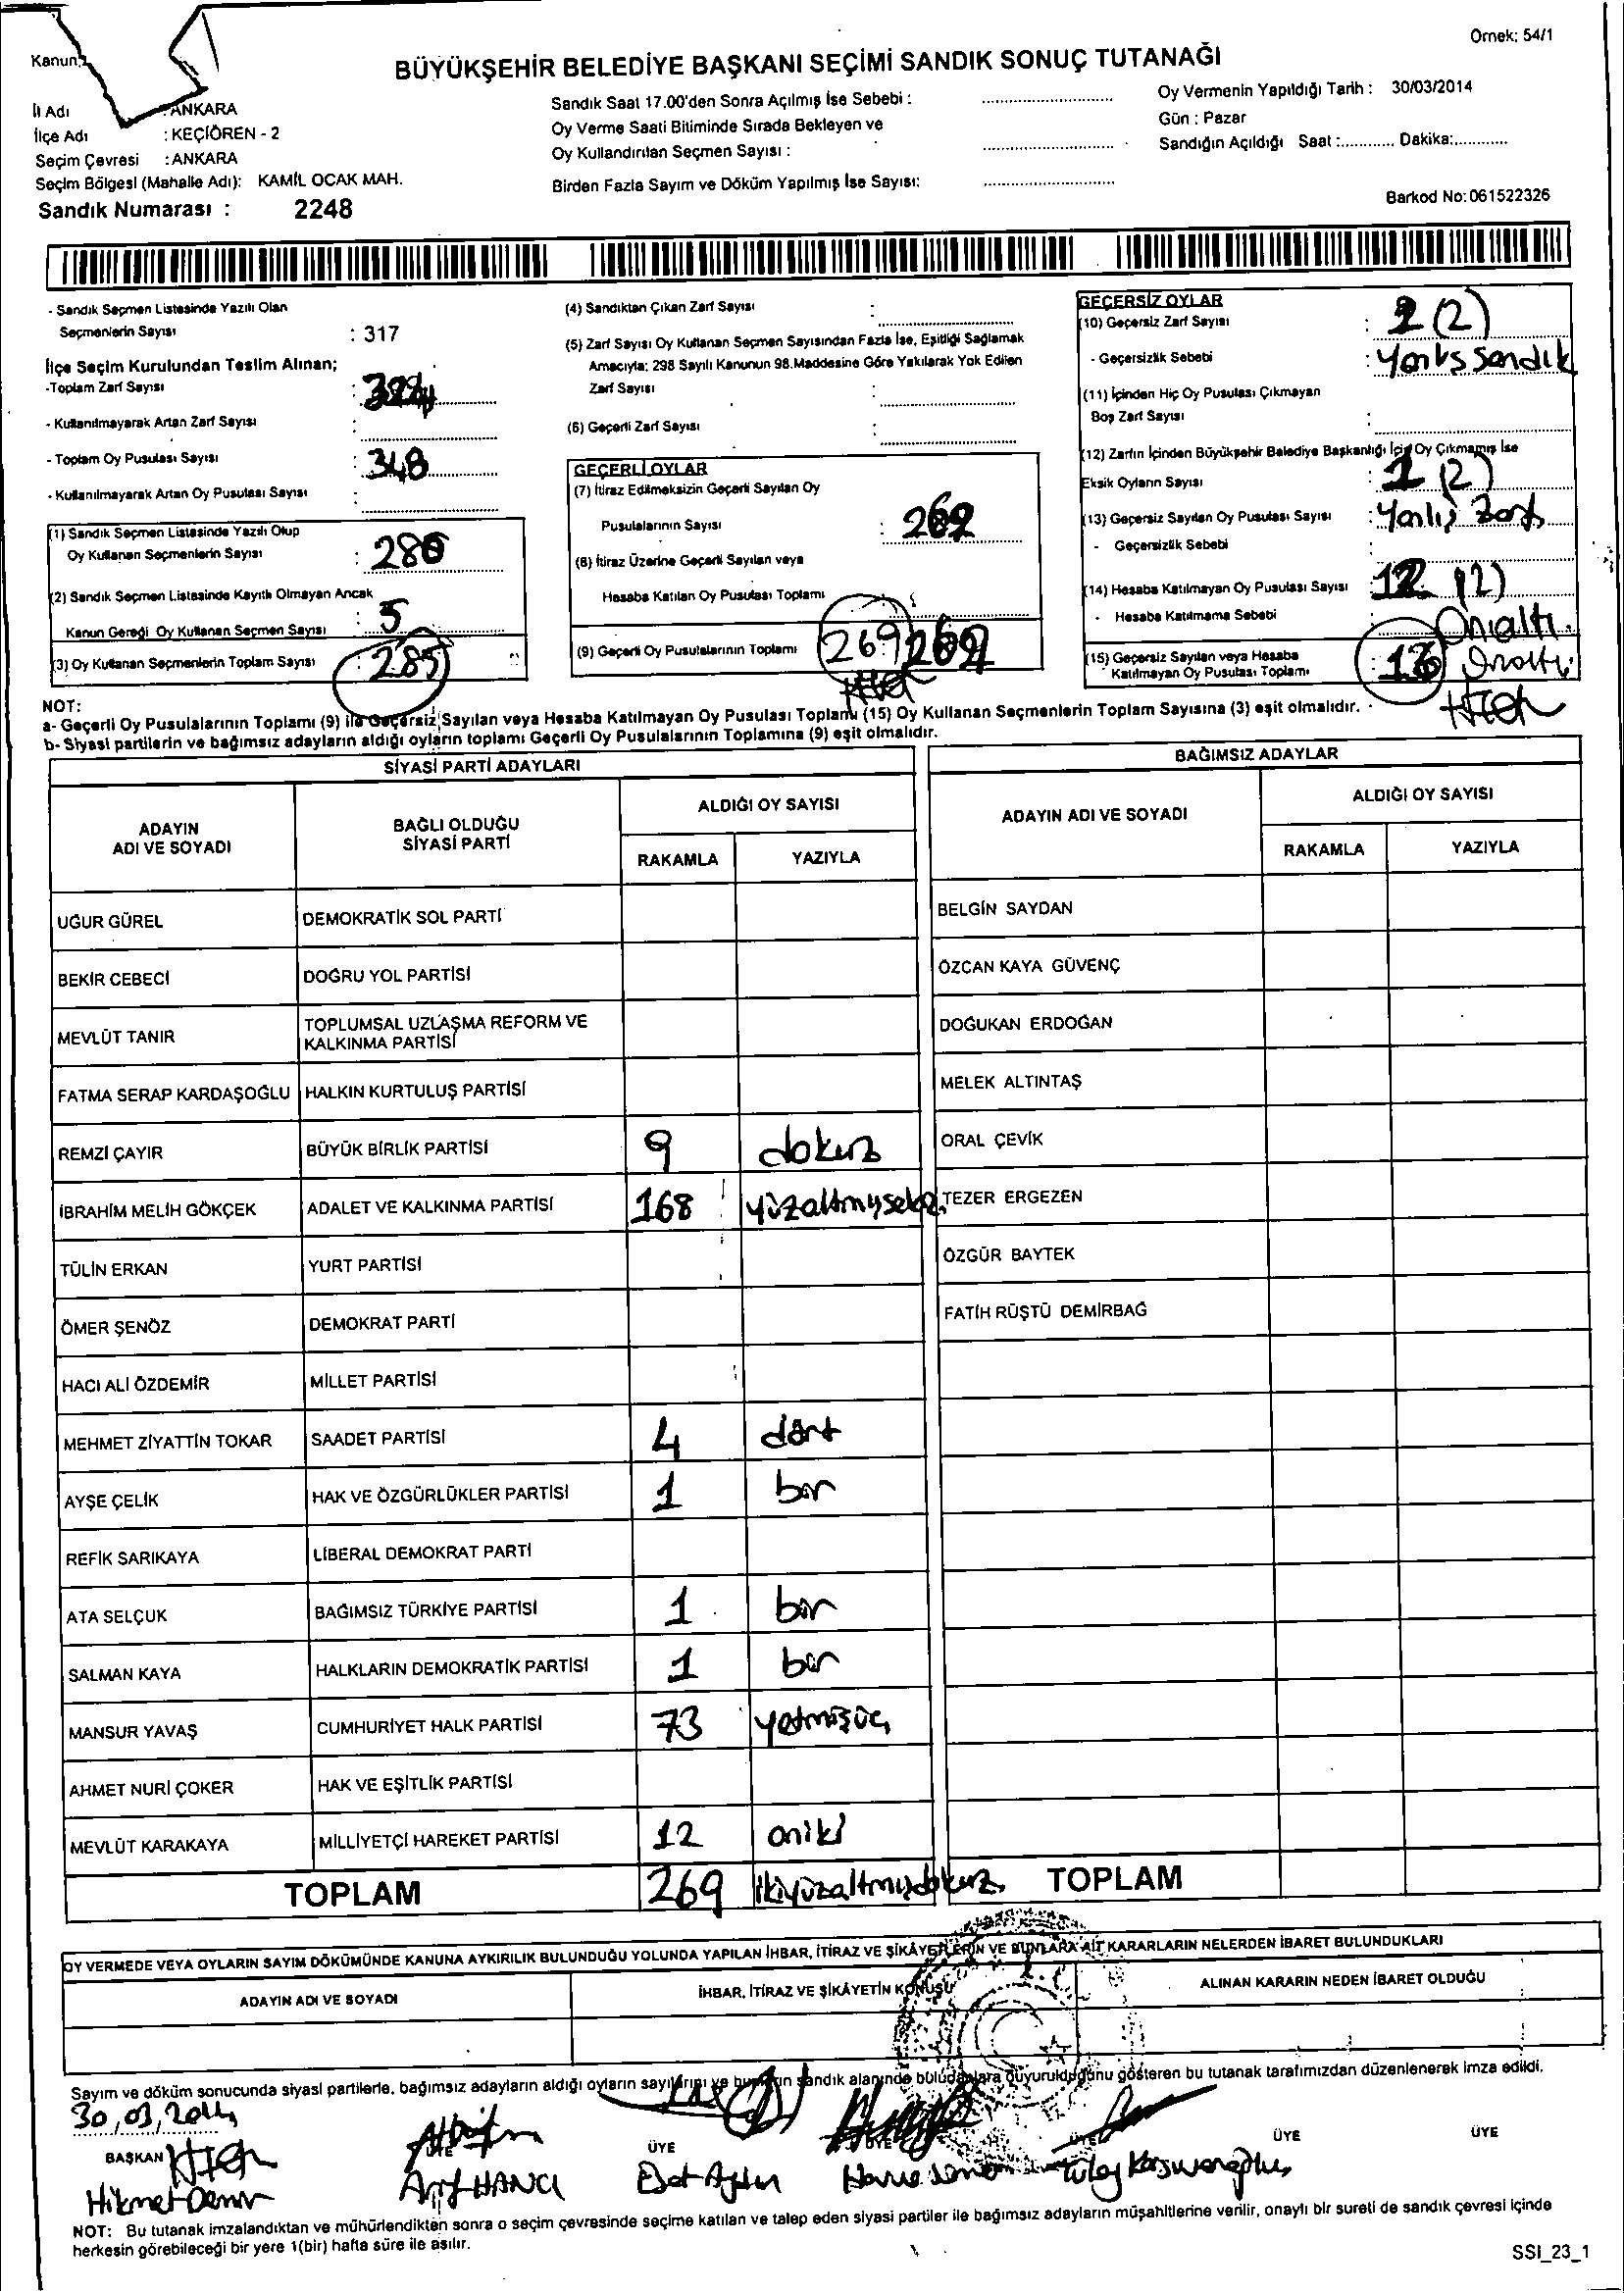 Örnek: 54/1
Kanun
BÜYÜKŞEHİR BELEDİYE BAŞKANI SEÇİMİ SANDIK SONUÇ TUTANAĞI
İl Adı : ANKARA
İlçe Adı : KEÇİÖREN - 2
Seçim Çevresi : ANKARA
Seçim Bölgesi (Mahalle Adı): KAMİL OCAK MAH.
Sandık Numarası : 2248
Sandık Saat 17.00'den Sonra Açılmış İse Sebebi :
Oy Verme Saati Bitiminde Sırada Bekleyen ve
Oy Kullandırılan Seçmen Sayısı :
Birden Fazla Sayım ve Döküm Yapılmış İse Sayısı:
Oy Vermenin Yapıldığı Tarih : 30/03/2014
Gün : Pazar
Sandığın Açıldığı Saat :............ Dakika:............
Barkod No: 061522326
- Sandık Seçmen Listesinde Yazılı Olan
Seçmenlerin Sayısı : 317
İlçe Seçim Kurulundan Teslim Alınan;
-Toplam Zarf Sayısı :
- Kullanılmayarak Artan Zarf Sayısı :
- Toplam Oy Pusulası Sayısı : 348
- Kullanılmayarak Artan Oy Pusulası Sayısı :
(1) Sandık Seçmen Listesinde Yazılı Olup
Oy Kullanan Seçmenlerin Sayısı : 280
(2) Sandık Seçmen Listesinde Kayıtlı Olmayan Ancak
Kanun Gereği Oy Kullanan Seçmen Sayısı : 5
(3) Oy Kullanan Seçmenlerin Toplam Sayısı : 285
(4) Sandıktan Çıkan Zarf Sayısı :
(5) Zarf Sayısı Oy Kullanan Seçmen Sayısından Fazla İse, Eşitliği Sağlamak
Amacıyla; 298 Sayılı Kanunun 98.Maddesine Göre Yakılarak Yok Edilen
Zarf Sayısı :
(6) Geçerli Zarf Sayısı :
GEÇERLİ OYLAR
(7) İtiraz Edilmeksizin Geçerli Sayılan Oy
Pusulalarının Sayısı : 269
(8) İtiraz Üzerine Geçerli Sayılan veya
Hesaba Katılan Oy Pusulası Toplamı :
(9) Geçerli Oy Pusulalarının Toplamı 269 269
GEÇERSİZ OYLAR
(10) Geçersiz Zarf Sayısı : 2 (2)
- Geçersizlik Sebebi : Yanlış sandık
(11) İçinden Hiç Oy Pusulası Çıkmayan
Boş Zarf Sayısı :
(12) Zarfın İçinden Büyükşehir Belediye Başkanlığı İçin Oy Çıkmamış İse
Eksik Oyların Sayısı : 1 (2)
(13) Geçersiz Sayılan Oy Pusulası Sayısı : Yanlış Zarf
- Geçersizlik Sebebi :
(14) Hesaba Katılmayan Oy Pusulası Sayısı : 12 (12)
- Hesaba Katılmama Sebebi : Onaltı.
(15) Geçersiz Sayılan veya Hesaba
Katılmayan Oy Pusulası Toplamı : 16 Onaltı
NOT:
a- Geçerli Oy Pusulalarının Toplamı (9) ile Geçersiz Sayılan veya Hesaba Katılmayan Oy Pusulası Toplamı (15) Oy Kullanan Seçmenlerin Toplam Sayısına (3) eşit olmalıdır.
b- Siyasi partilerin ve bağımsız adayların aldığı oyların toplamı Geçerli Oy Pusulalarının Toplamına (9) eşit olmalıdır.
SİYASİ PARTİ ADAYLARI
BAĞIMSIZ ADAYLAR
ADAYIN ADI VE SOYADI
BAĞLI OLDUĞU SİYASİ PARTİ
ALDIĞI OY SAYISI
RAKAMLA YAZIYLA
ADAYIN ADI VE SOYADI
ALDIĞI OY SAYISI
RAKAMLA YAZIYLA
UĞUR GÜREL DEMOKRATİK SOL PARTİ BELGİN SAYDAN
BEKİR CEBECİ DOĞRU YOL PARTİSİ ÖZCAN KAYA GÜVENÇ
MEVLÜT TANIR TOPLUMSAL UZLAŞMA REFORM VE KALKINMA PARTİSİ DOĞUKAN ERDOĞAN
FATMA SERAP KARDAŞOĞLU HALKIN KURTULUŞ PARTİSİ MELEK ALTINTAŞ
REMZİ ÇAYIR BÜYÜK BİRLİK PARTİSİ 9 dokuz ORAL ÇEVİK
İBRAHİM MELİH GÖKÇEK ADALET VE KALKINMA PARTİSİ 168 yüzaltmışsekiz TEZER ERGEZEN
TÜLİN ERKAN YURT PARTİSİ ÖZGÜR BAYTEK
ÖMER ŞENÖZ DEMOKRAT PARTİ FATİH RÜŞTÜ DEMİRBAĞ
HACI ALİ ÖZDEMİR MİLLET PARTİSİ
MEHMET ZİYATTİN TOKAR SAADET PARTİSİ 4 dört
AYŞE ÇELİK HAK VE ÖZGÜRLÜKLER PARTİSİ 1 bir
REFİK SARIKAYA LİBERAL DEMOKRAT PARTİ
ATA SELÇUK BAĞIMSIZ TÜRKİYE PARTİSİ 1 bir
SALMAN KAYA HALKLARIN DEMOKRATİK PARTİSİ 1 bir
MANSUR YAVAŞ CUMHURİYET HALK PARTİSİ 73 yetmişüç
AHMET NURİ ÇOKER HAK VE EŞİTLİK PARTİSİ
MEVLÜT KARAKAYA MİLLİYETÇİ HAREKET PARTİSİ 12 oniki
TOPLAM 269 ikiyüzaltmışdokuz TOPLAM
OY VERMEDE VEYA OYLARIN SAYIM DÖKÜMÜNDE KANUNA AYKIRILIK BULUNDUĞU YOLUNDA YAPILAN İHBAR, İTİRAZ VE ŞİKÂYETLERİN VE BUNLARA AİT KARARLARIN NELERDEN İBARET BULUNDUKLARI
ADAYIN ADI VE SOYADI İHBAR, İTİRAZ VE ŞİKÂYETİN KONUSU ALINAN KARARIN NEDEN İBARET OLDUĞU
Sayım ve döküm sonucunda siyasi partilerle, bağımsız adayların aldığı oyların sayılarını ve bunların sandık alanında bulunanlara duyurulduğunu gösteren bu tutanak tarafımızdan düzenlenerek imza edildi.
30,03,2014
BAŞKAN ÜYE ÜYE ÜYE ÜYE ÜYE ÜYE
Hikmet Demir Arif HANCI Esat Aydın
NOT: Bu tutanak imzalandıktan ve mühürlendikten sonra o seçim çevresinde seçime katılan ve talep eden siyasi partiler ile bağımsız adayların müşahitlerine verilir, onaylı bir sureti de sandık çevresi içinde
herkesin görebileceği bir yere 1(bir) hafta süre ile asılır.
SSI_23_1